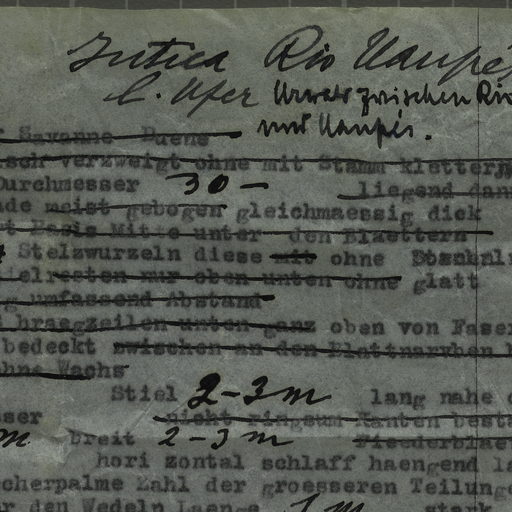 Jutica Rio Uaupés
l. Ufer Urwald zwischen Rio
und Uaupés.
Savanne Duene
isch verzweigt ohne mit Stamm kletternd
Durchmesser 30 – liegend dann
nde meist gebogen gleichmaessig dick
t Basis Mitte unter den Blaettern
Stelzwurzeln diese mit ohne Stacheln
tielresten nur oben unten ohne glatt
g umfassend Abstand
braegzeilen unten ganz oben von Faser
bedeckt zwischen an den Blattnarben
ohne Wachs
Stiel 2-3m lang nahe
sser nicht ringsum Kanten best
m breit 2-3m Fiederblae
hori zontal schlaff haengend la
cherpalme Zahl der groesseren Teilunge
r den Wedeln Laenge 1m stark